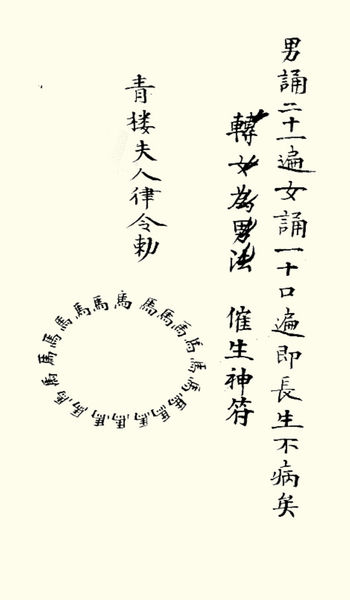 男誦二十一遍女誦一十口遍即長生不病矣
轉女為男法　催生神符
青楼夫人律令勅
馬馬馬馬馬馬馬馬馬馬馬馬馬馬馬馬馬馬馬馬